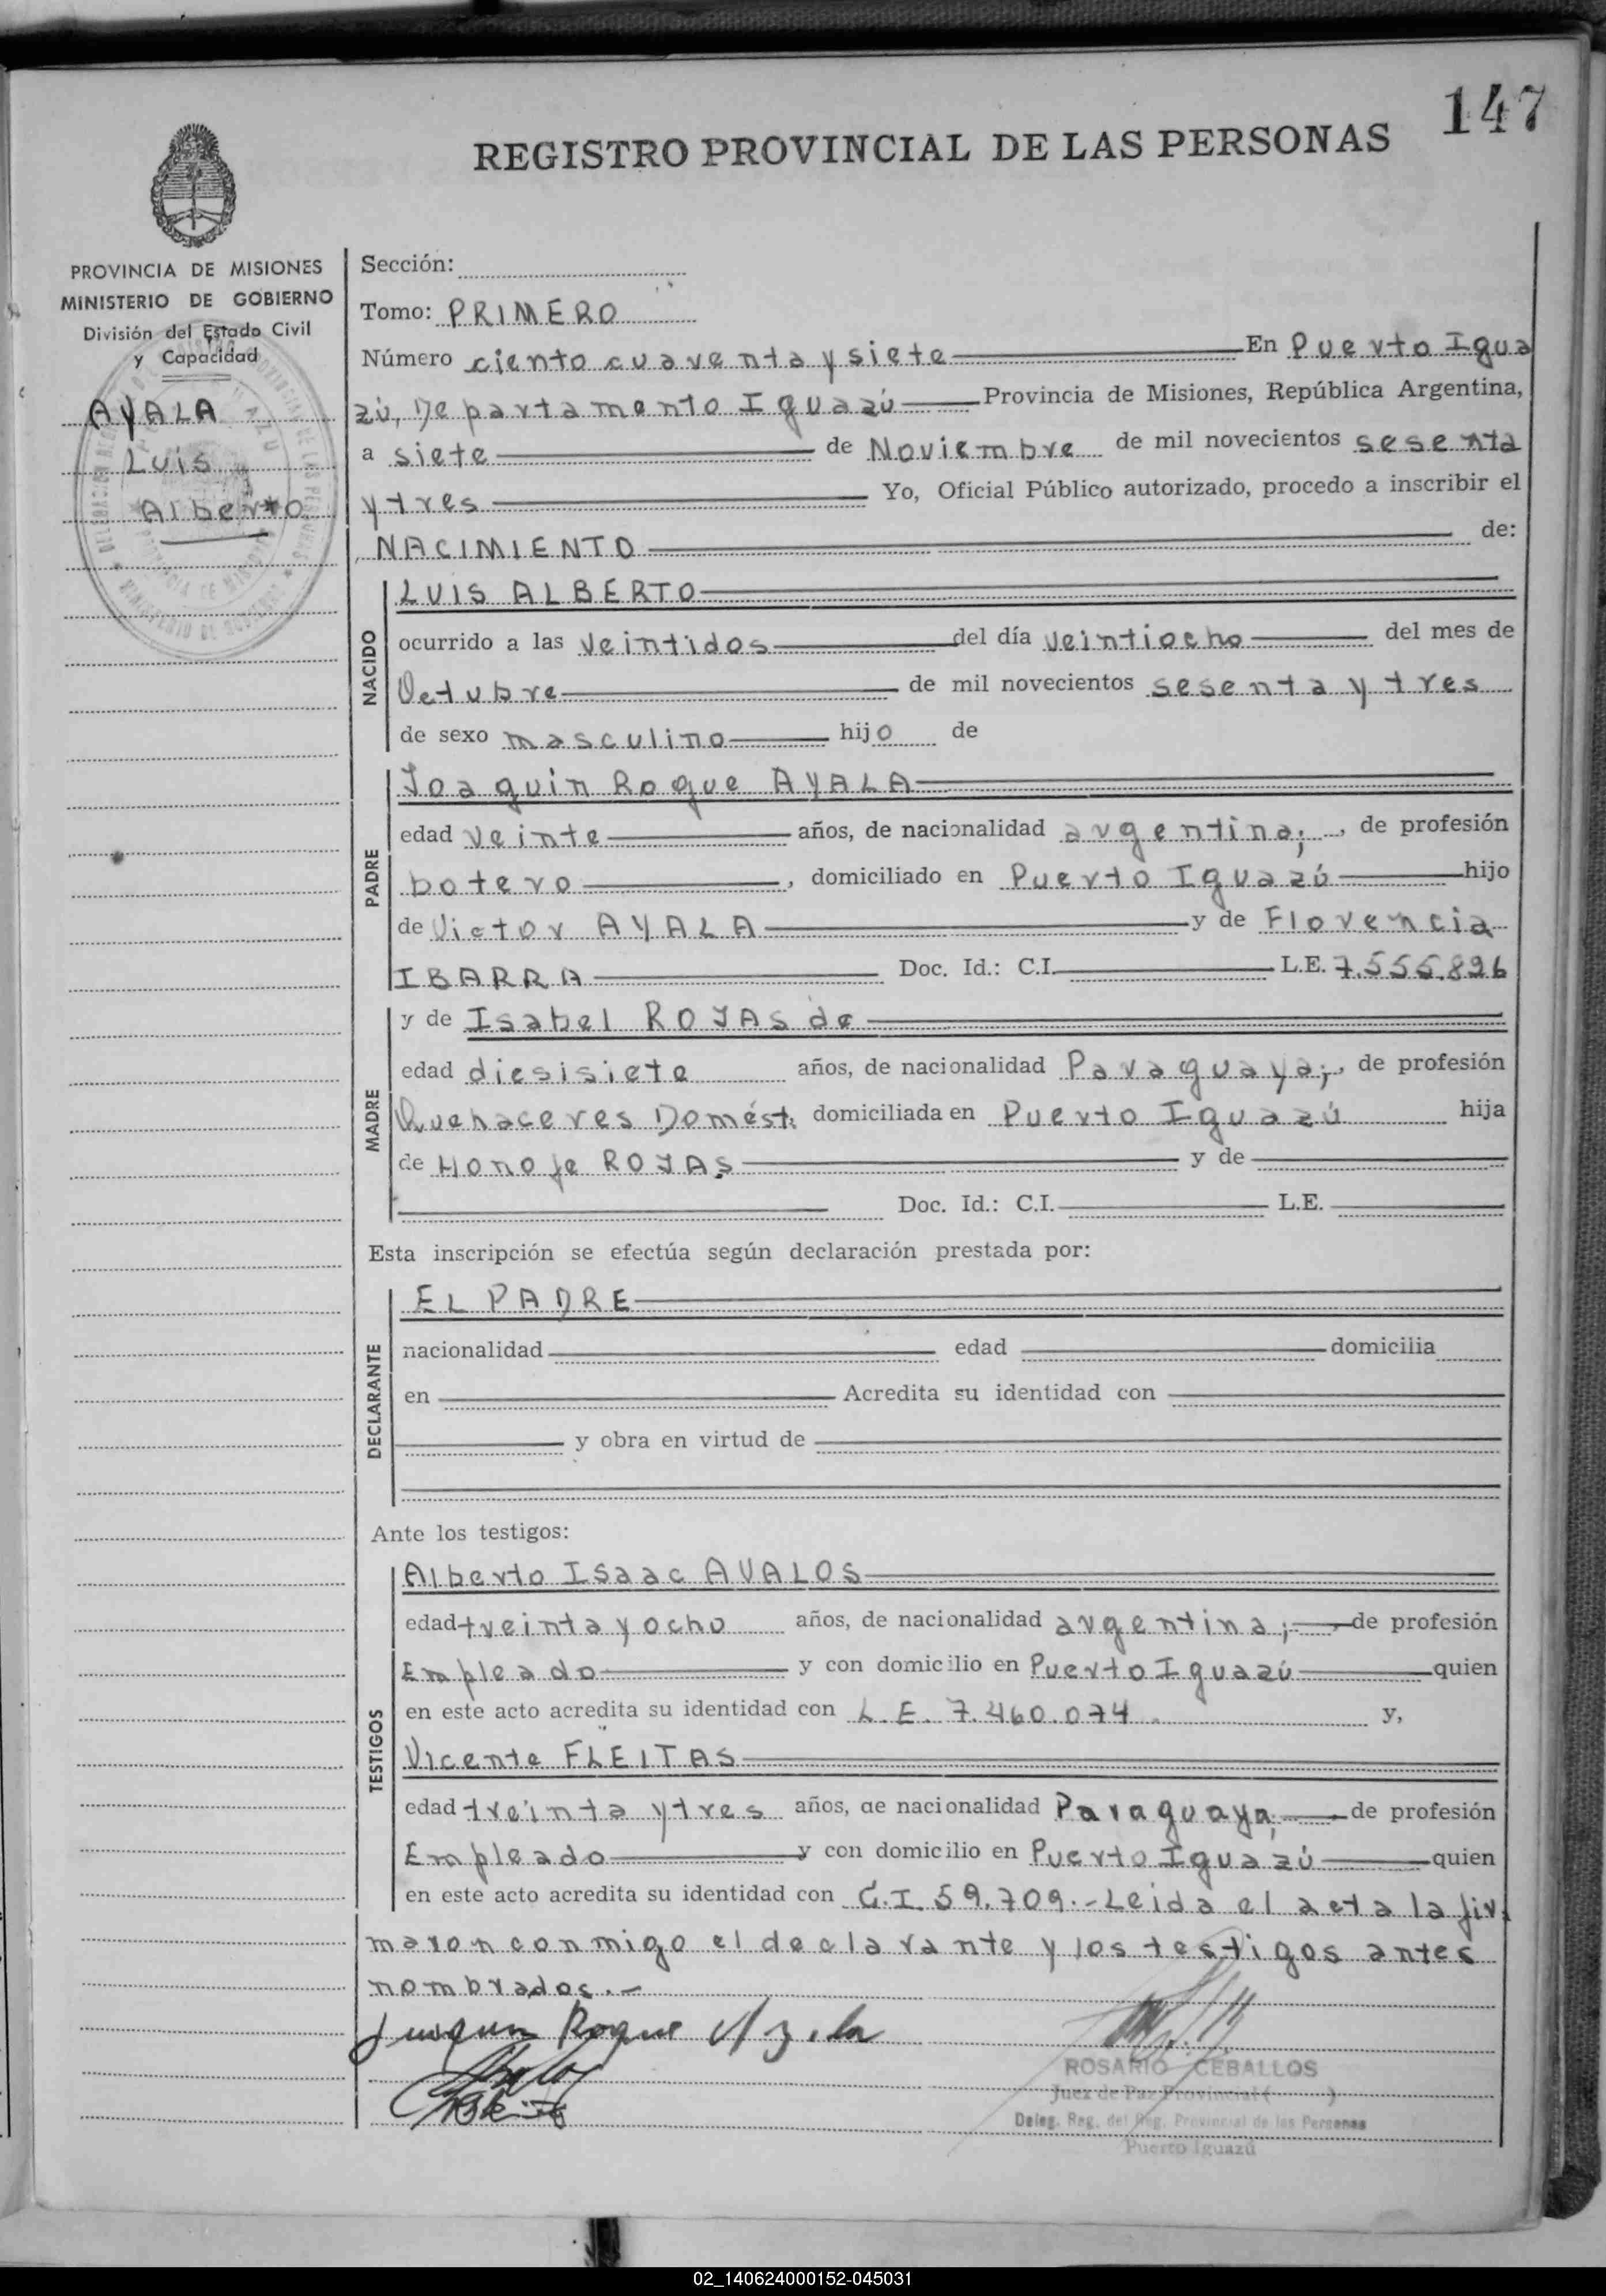 147
REGISTRO PROVINCIAL DE LAS PERSONAS
PROVINCIA DE MISIONES
MINISTERIO DE GOBIERNO
División del Estado Civil
y Capacidad
AYALA
Luis
Alberto
Sección:
Tomo: PRIMERO
Número ciento cuarenta y siete En Puerto Igua
zú, Departamento Iguazú Provincia de Misiones, República Argentina,
a siete de Noviembre de mil novecientos sesenta
y tres Yo, Oficial Público autorizado, procedo a inscribir el
NACIMIENTO de:
NACIDO
LUIS ALBERTO
ocurrido a las veintidos del día veintiocho del mes de
Octubre de mil novecientos sesenta y tres
de sexo masculino hijo de
PADRE
Joaquin Roque AYALA
edad veinte años, de nacionalidad argentina; , de profesión
botero , domiciliado en Puerto Iguazú hijo
de Victor AYALA y de Florencia
IBARRA Doc. Id.: C.I. L.E. 7.555.896
MADRE
y de Isabel ROJAS de
edad diesisiete años, de nacionalidad Paraguaya; , de profesión
Quehaceres Domést. domiciliada en Puerto Iguazú hija
de Honofe ROJAS y de
Doc. Id.: C.I. L.E.
Esta inscripción se efectúa según declaración prestada por:
DECLARANTE
EL PADRE
nacionalidad edad domicilia
en Acredita su identidad con
y obra en virtud de
Ante los testigos:
TESTIGOS
Alberto Isaac AVALOS
edad treinta y ocho años, de nacionalidad argentina; , de profesión
Empleado y con domicilio en Puerto Iguazú quien
en este acto acredita su identidad con L.E. 7.460.074 y,
Vicente FLEITAS
edad treinta y tres años, de nacionalidad Paraguaya, de profesión
Empleado y con domicilio en Puerto Iguazú quien
en este acto acredita su identidad con C.I. 59.709.- Leida el acta la fir
maron conmigo el declarante y los testigos antes
nombrados.-
Juaquin Roque Ayala
ROSARIO CEBALLOS
Juez de Paz Provincial ( )
Deleg. Reg. del Reg. Provincial de las Personas
Puerto Iguazú
02_140624000152-045031